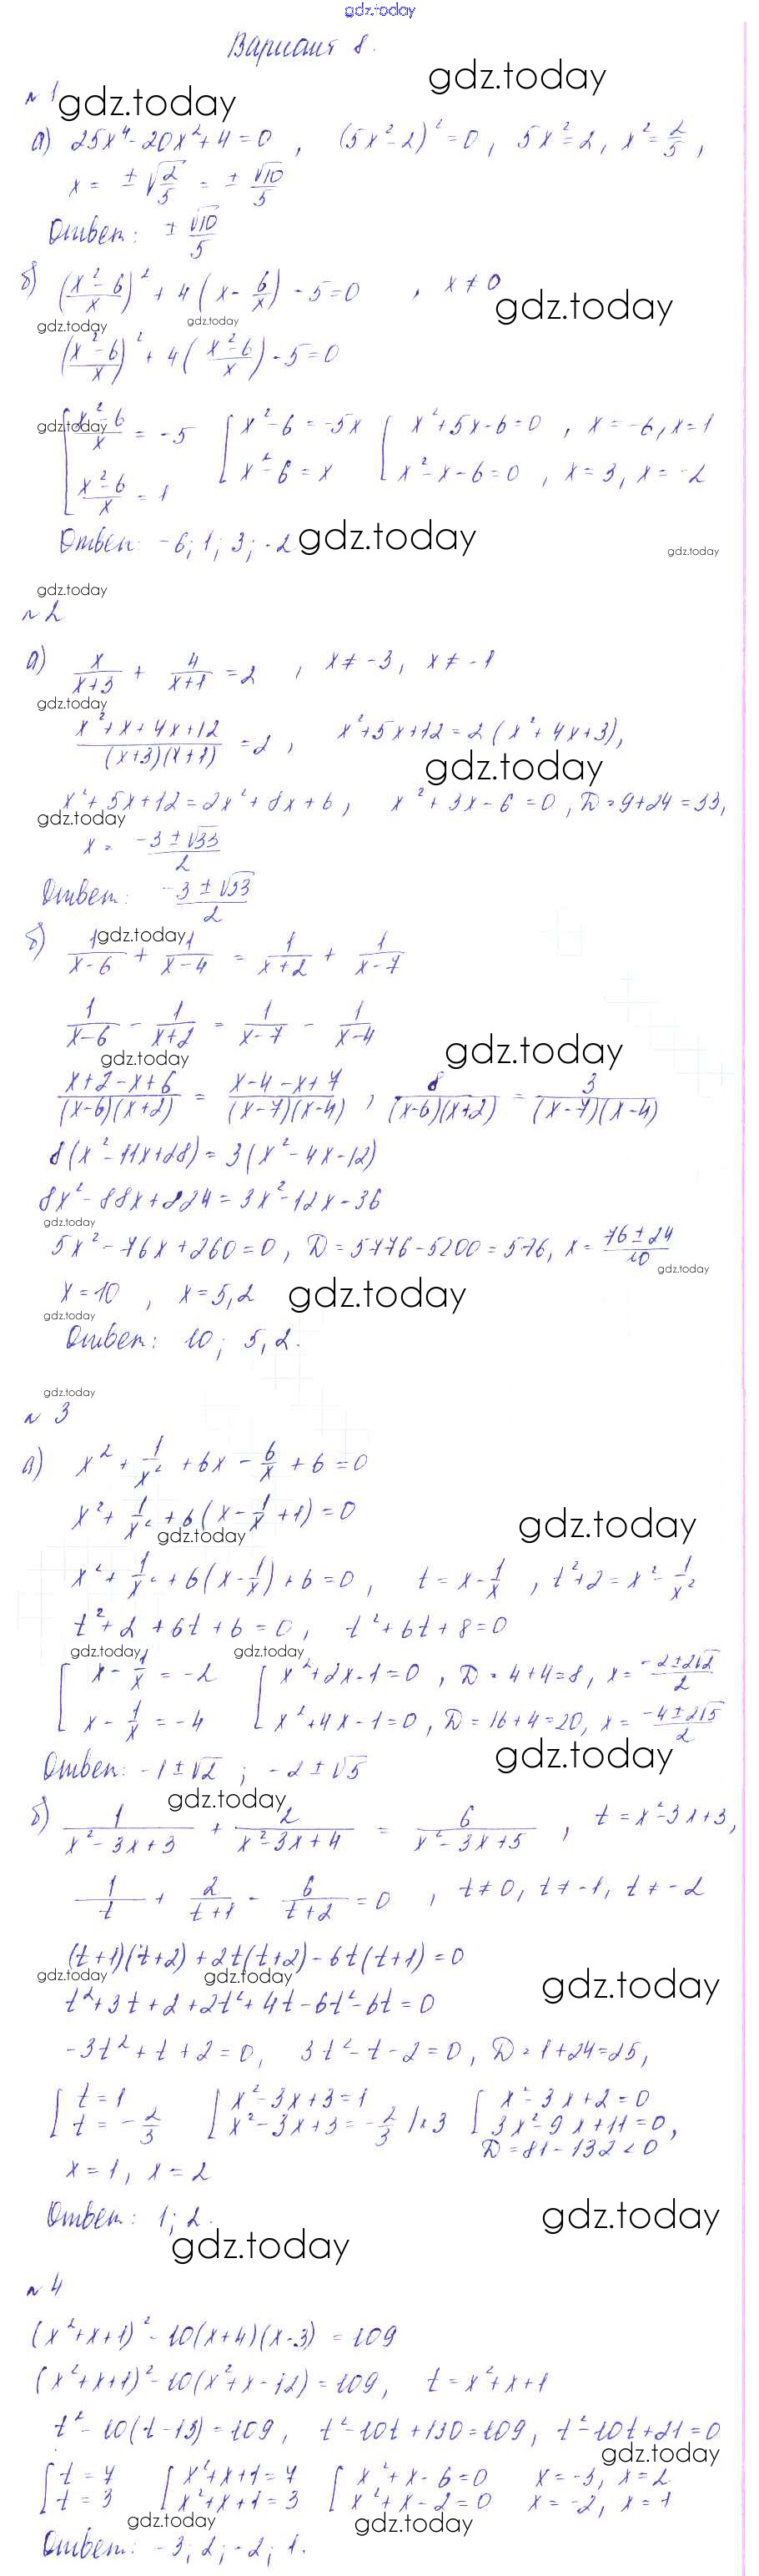 gdz.today
Вариант 8.
gdz.today
№ 1 gdz.today
а) 25x⁴ - 20x² + 4 = 0 , (5x² - 2)² = 0 , 5x² = 2 , x² = 2/5 ,
x = ± √(2/5) = ± √10/5
Ответ: ± √10/5
б) ((x² - 6)/x)² + 4 (x - 6/x) - 5 = 0 , x ≠ 0
gdz.today
gdz.today gdz.today
((x² - 6)/x)² + 4 ((x² - 6)/x) - 5 = 0
gdz.today
[ (x² - 6)/x = -5 [ x² - 6 = -5x [ x² + 5x - 6 = 0 , x = -6, x = 1
(x² - 6)/x = 1 x² - 6 = x x² - x - 6 = 0 , x = 3, x = -2
Ответ: -6; 1; 3; -2 gdz.today
gdz.today
gdz.today
№ 2
а) x/(x+3) + 4/(x+1) = 2 , x ≠ -3, x ≠ -1
gdz.today
(x² + x + 4x + 12)/((x+3)(x+1)) = 2 , x² + 5x + 12 = 2 (x² + 4x + 3),
gdz.today
x² + 5x + 12 = 2x² + 8x + 6 , x² + 3x - 6 = 0 , D = 9 + 24 = 33,
gdz.today
x = (-3 ± √33)/2
Ответ: (-3 ± √33)/2
б) 1/(x-6) + 1/(x-4) = 1/(x+2) + 1/(x-7)
gdz.today
1/(x-6) - 1/(x+2) = 1/(x-7) - 1/(x-4)
gdz.today gdz.today
(x+2-x+6)/((x-6)(x+2)) = (x-4-x+7)/((x-7)(x-4)) , 8/((x-6)(x+2)) = 3/((x-7)(x-4))
8(x² - 11x + 28) = 3(x² - 4x - 12)
8x² - 88x + 224 = 3x² - 12x - 36
gdz.today
5x² - 76x + 260 = 0 , D = 5776 - 5200 = 576, x = (76 ± 24)/10
gdz.today
x = 10 , x = 5,2 gdz.today
gdz.today
Ответ: 10; 5,2.
gdz.today
№ 3
а) x² + 1/x² + 6x - 6/x + 6 = 0
x² + 1/x² + 6(x - 1/x + 1) = 0
gdz.today gdz.today
x² + 1/x² + 6(x - 1/x) + 6 = 0 , t = x - 1/x , t² + 2 = x² - 1/x²
t² + 2 + 6t + 6 = 0 , t² + 6t + 8 = 0
gdz.today gdz.today
[ x - 1/x = -2 [ x² + 2x - 1 = 0 , D = 4 + 4 = 8 , x = (-2 ± 2√2)/2
x - 1/x = -4 x² + 4x - 1 = 0 , D = 16 + 4 = 20, x = (-4 ± 2√5)/2
Ответ: -1 ± √2 ; -2 ± √5
gdz.today
gdz.today
б) 1/(x² - 3x + 3) + 2/(x² - 3x + 4) = 6/(x² - 3x + 5) , t = x² - 3x + 3,
1/t + 2/(t+1) - 6/(t+2) = 0 , t ≠ 0, t ≠ -1, t ≠ -2
(t+1)(t+2) + 2t(t+2) - 6t(t+1) = 0
gdz.today gdz.today gdz.today
t² + 3t + 2 + 2t² + 4t - 6t² - 6t = 0
-3t² + t + 2 = 0 , 3t² - t - 2 = 0 , D = 1 + 24 = 25,
[ t = 1 [ x² - 3x + 3 = 1 [ x² - 3x + 2 = 0
t = -2/3 x² - 3x + 3 = -2/3 |×3 3x² - 9x + 11 = 0,
D = 81 - 132 < 0
x = 1, x = 2
Ответ: 1; 2. gdz.today
gdz.today
№ 4
(x² + x + 1)² - 10(x+4)(x-3) = 109
(x² + x + 1)² - 10(x² + x - 12) = 109, t = x² + x + 1
t² - 10(t - 13) = 109 , t² - 10t + 130 = 109, t² - 10t + 21 = 0
gdz.today
[ t = 7 [ x² + x + 1 = 7 [ x² + x - 6 = 0 x = -3, x = 2
t = 3 x² + x + 1 = 3 x² + x - 2 = 0 x = -2, x = 1
gdz.today gdz.today
Ответ: -3; 2; -2; 1.